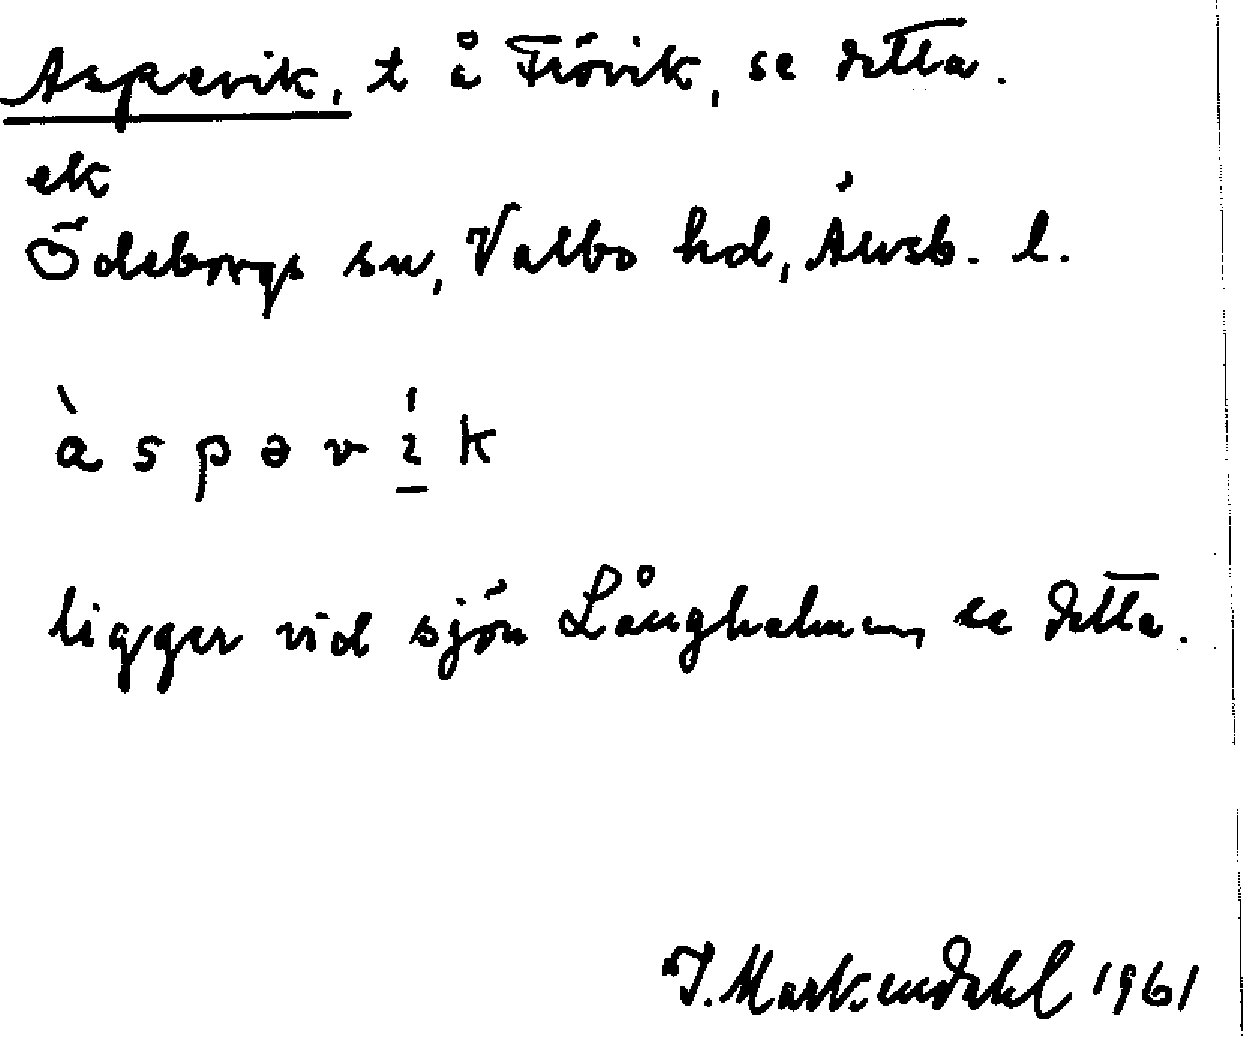 Aspevik, t å Fiövik, se detta.
ek
Ödeborgs sn, Valbo hd, Älvsb. l.
àspəvík
ligger vid sjön Långhalmen, se detta.
I. Markendahl 1961